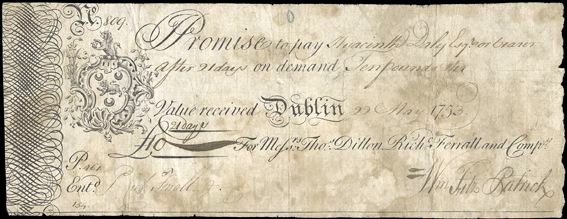 No. 809.
Promise to pay Hyacinth Daly Esqr. or bearer
After 21 days on demand Ten pounds Ster
Value received Dublin 22 May 1753
21 days
£10 For Messrs. Thos. Dillon, Richd. Ferrall and Compy.
P. 161
Entd.
Wm. Fitz Patrick